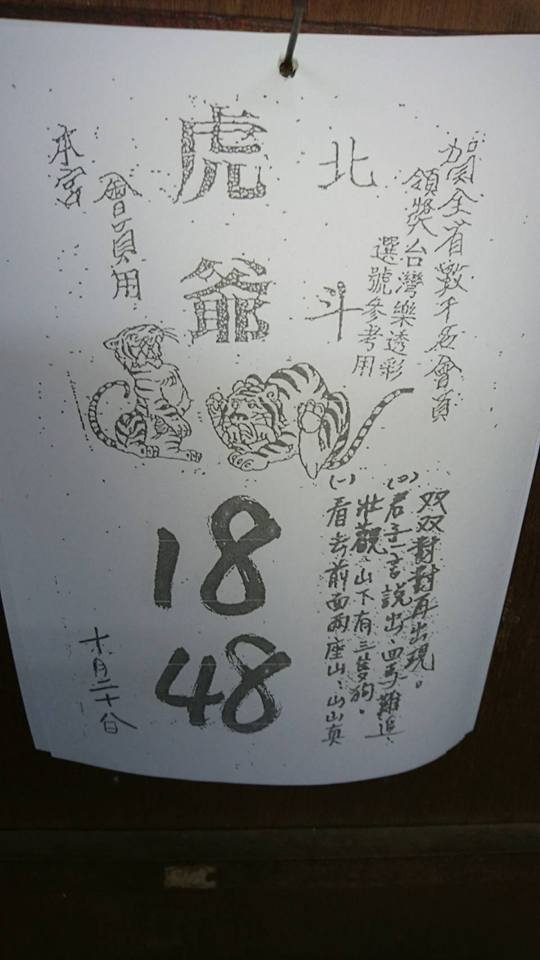 賀全省數千名會員
領獎台灣樂透彩
選號參考用
北斗
虎爺
會員用
本宮
(一)看去前面兩座山、山山真
壯觀、山下有三隻狗。
(2)君子一言說出、四馬難追、
双双對對再出現。
18
48